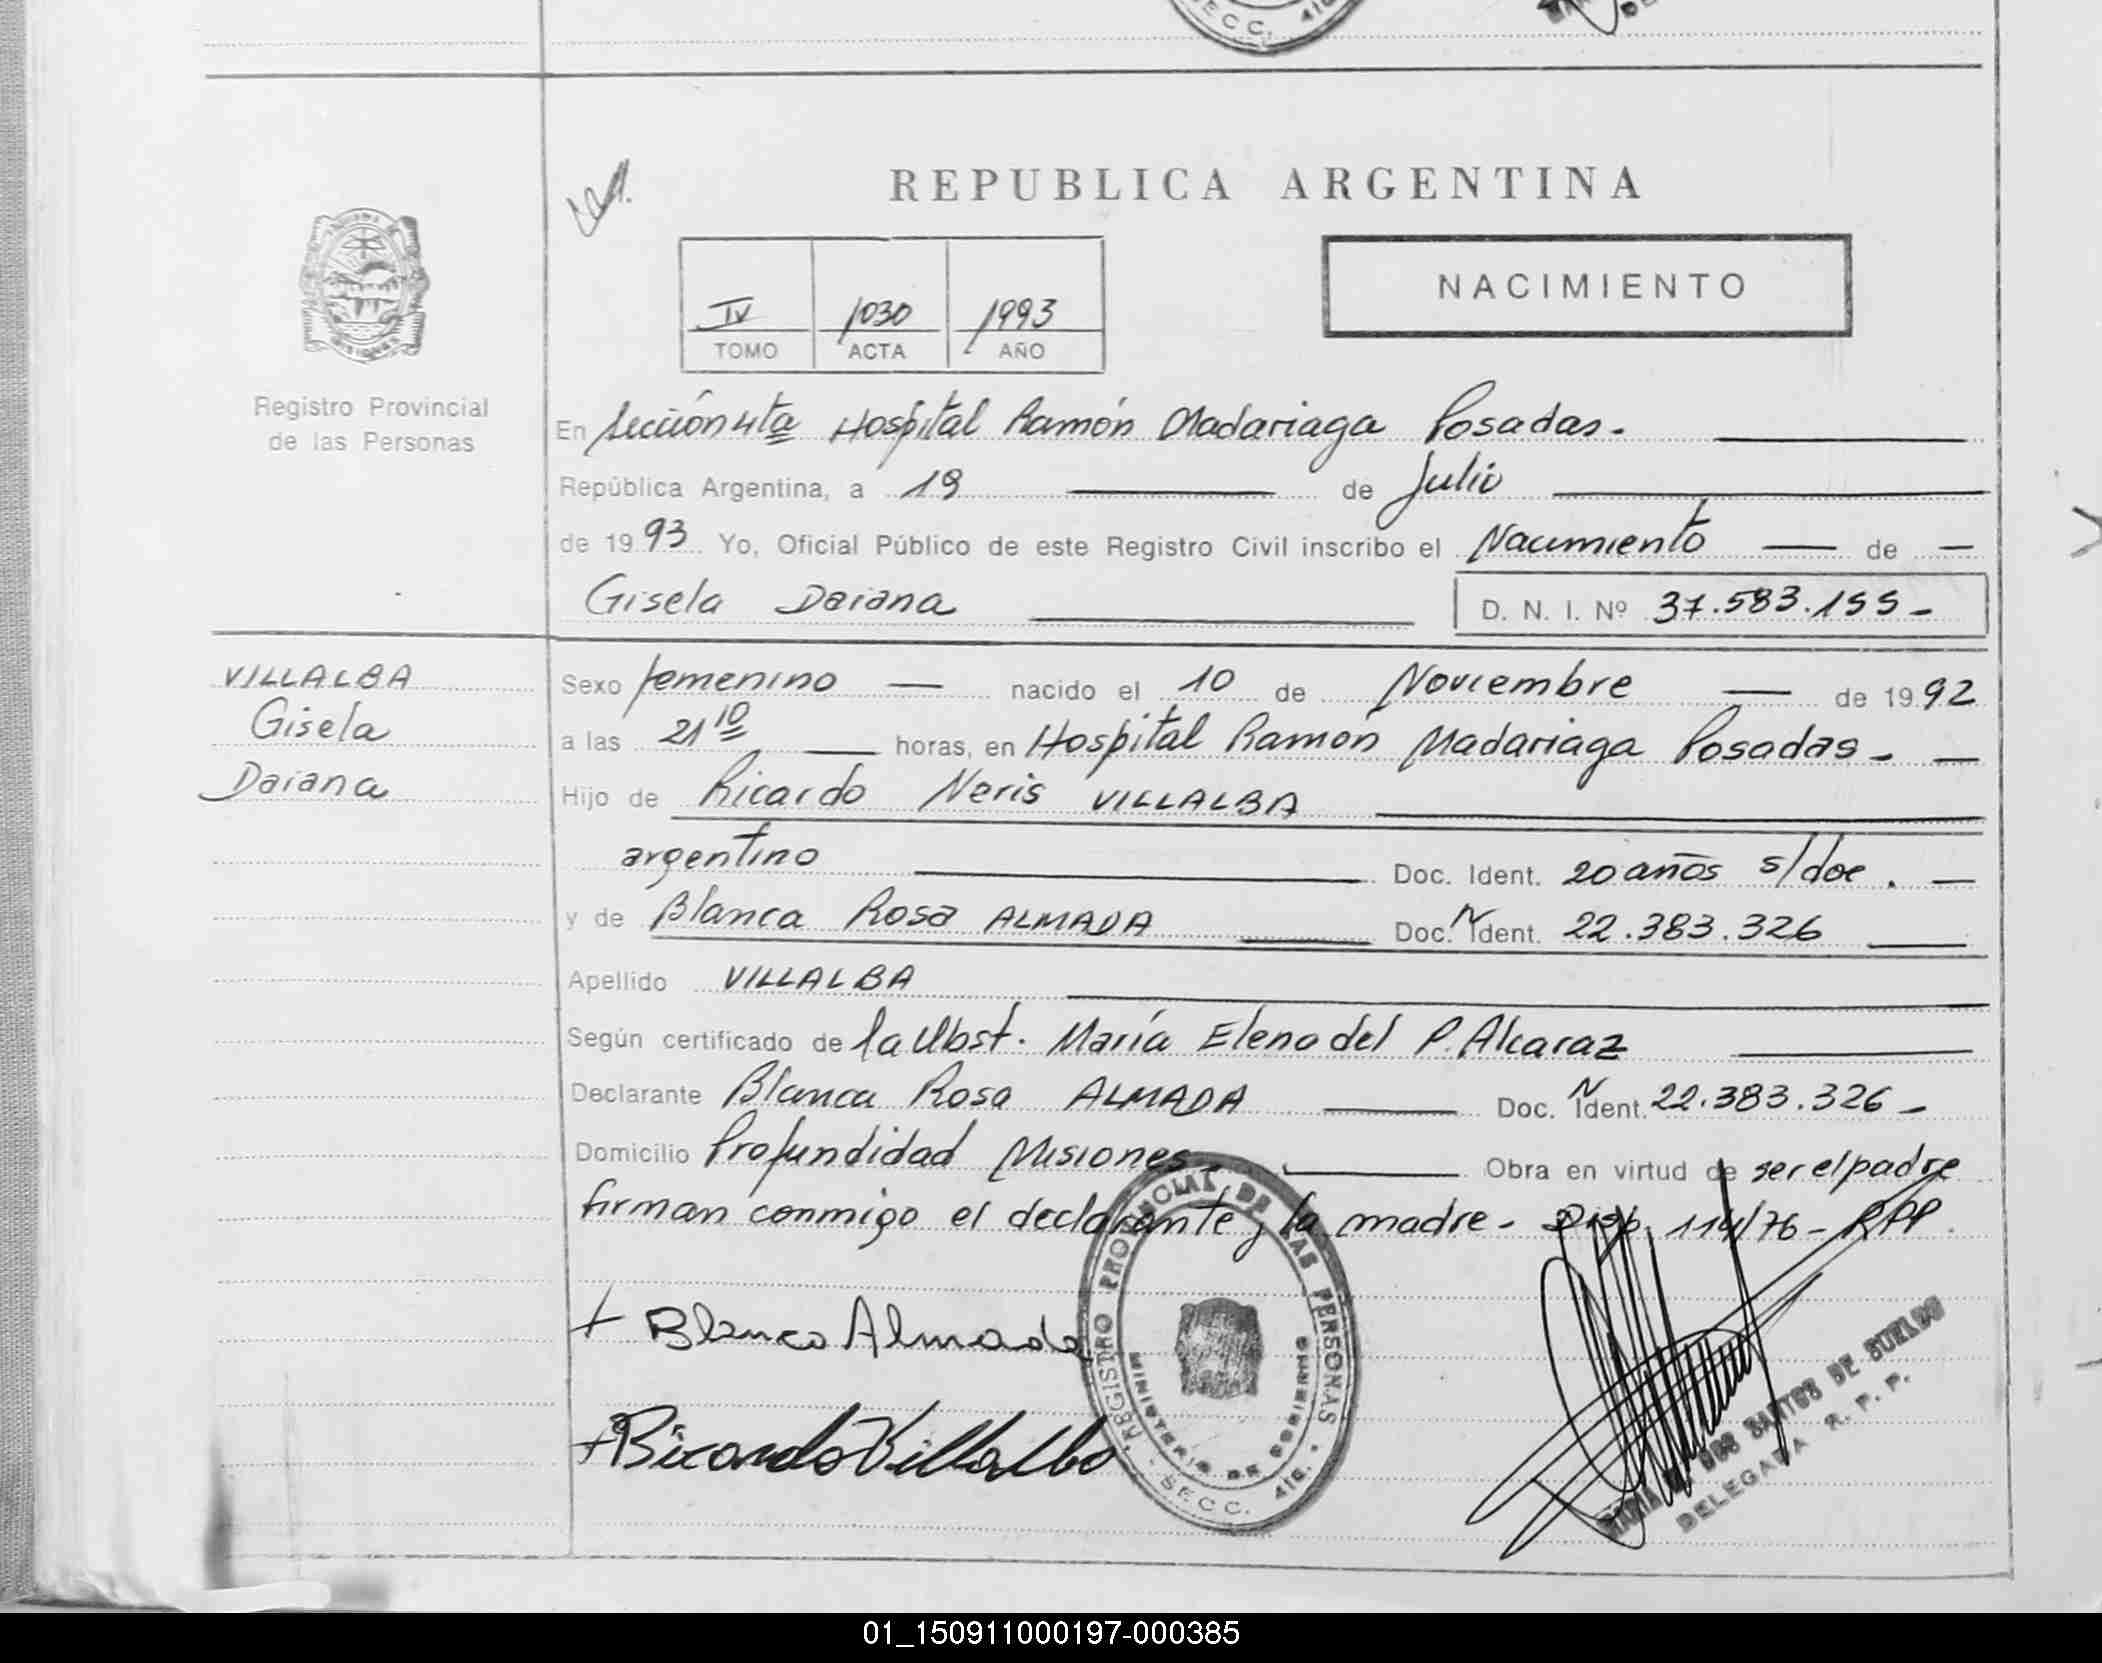 SECC. 4ta
REPUBLICA ARGENTINA
NACIMIENTO
IV 1030 1993
TOMO ACTA AÑO
Registro Provincial
de las Personas
En Sección 4ta Hospital Ramón Madariaga Posadas.
República Argentina, a 19 de Julio
de 1993 Yo, Oficial Público de este Registro Civil inscribo el Nacimiento — de —
Gisela Daiana
D. N. I. Nº 37.583.155 -
VILLALBA
Gisela
Daiana
Sexo femenino — nacido el 10 de Noviembre — de 1992
a las 21 10 — horas, en Hospital Ramón Madariaga Posadas - —
Hijo de Ricardo Neris VILLALBA
argentino Doc. Ident. 20 años s/doc. —
y de Blanca Rosa ALMADA Doc. N Ident. 22.383.326
Apellido VILLALBA
Según certificado de la Obst. María Elena del P. Alcaraz
Declarante Blanca Rosa ALMADA Doc. N Ident. 22.383.326 -
Domicilio Profundidad Misiones - Obra en virtud de ser el padre
firman conmigo el declarante y la madre - Disp. 114/76 - RPP.
+ Blanca Almada
+ Ricardo Villalba
REGISTRO PROVINCIAL DE LAS PERSONAS
MINISTERIO DE GOBIERNO
SECC. 4ta.
DOS SANTOS DE SUELDO
DELEGADA R. P. P.
01_150911000197-000385